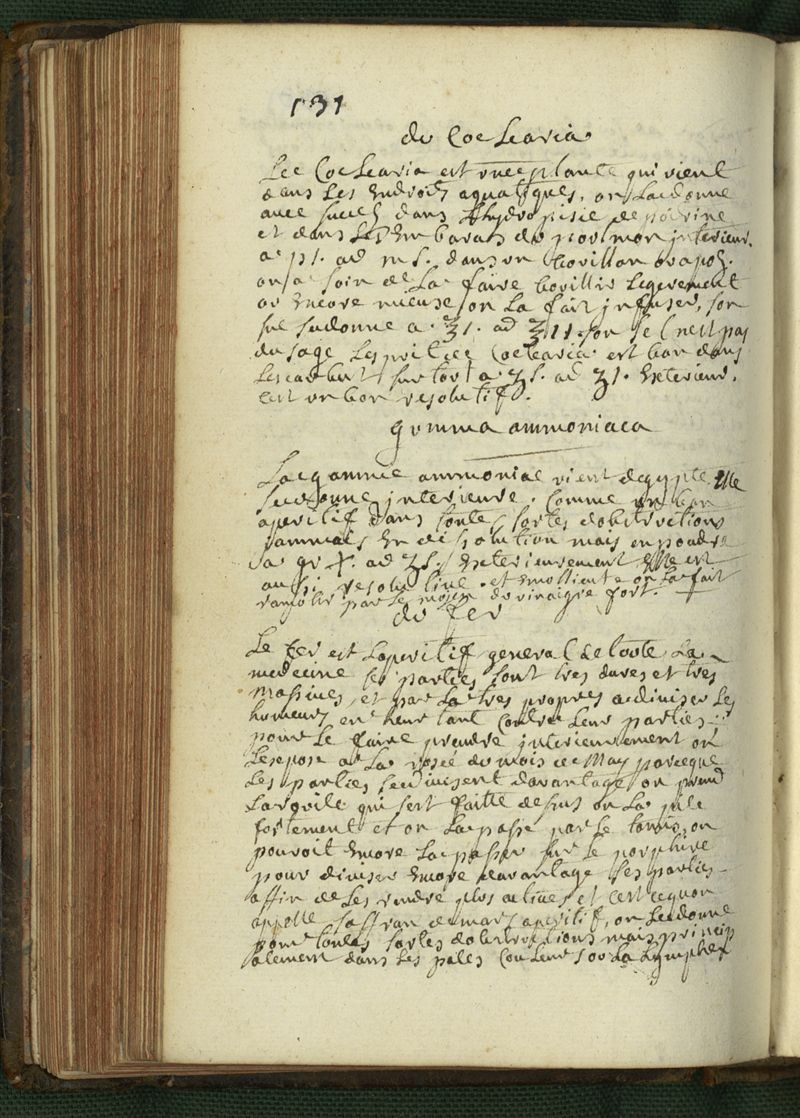 131
du Coclearia
Le Coclearia est une plante qui vient
dans les Endroits aquatiques, on la donne
avec succes dans l'hydropisie de poitrine
et dans les Embaras du poumon interieur.
a p 1. ad m s. dans un bouillon
on a soin de la faire bouillir legerement
ou Encore mieux on la fait infuser, son
suc se donne a ʒ 1. ad ʒ 11. son sel n'est pas
du sage Lesprit de Coclearia est bon dans
Lescorbut sur tout a ʒ s. ad ʒ 1. Exterieur.
est un bon resolutif.
gumma ammoniaca
La gomme ammoniac vient degypte. Elle
se donne interieure. Comme un bon
aperitif dans toute sortes dobstructions
jammais En dissolution mais en poudre
a gr x. ad ʒ s. Exterieurement Elle est
aussi resolutive. et Emolliente on la fait
ramolir par le moien du vinaigre fort.
du fer
Le fer est Laperitif general de toute La
medecine ses parties sont tres dures et tres
massives, et par la tres propres a diviser Les
humeurs en heurtant Contre Leur parties
pour Le faire prendre interieurement on
Lexpose a La rosée du mois de May parceque
Les parties se divisent davantage on prend
La rouile qui sest faitte dessus on La pile
fortement et on La passe par Le tamis, on
pouroit Encore La passer sur Le porphire
pour diviser Encore davantage ses parties
affin de Les rendre plus actives, et cest ce quon
appelle saffran de mars aperitif, on Le donne
pour toutes sortes dobstructions mais princip
alement dans Les pales Couleurs ou La Lymphe